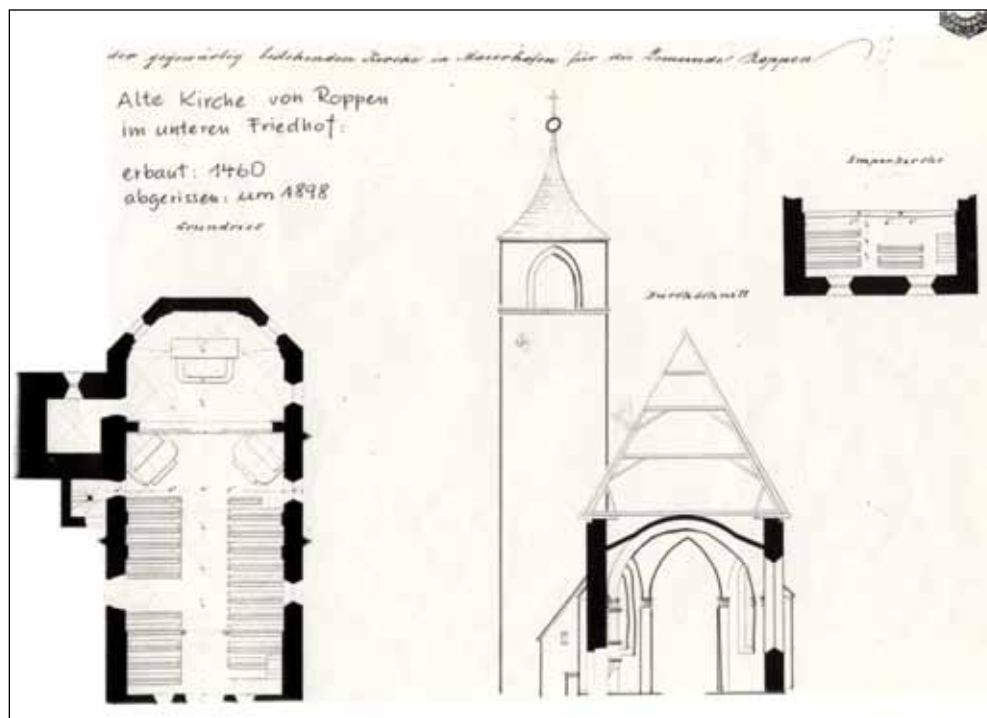 der gegenwärtig bestehenden Kirche in Maierhofen für die Gemeinde Roppen
Alte Kirche von Roppen
im unteren Friedhof:
erbaut: 1460
abgerissen: um 1898
Grundriss
Emporkirche
Durchschnitt